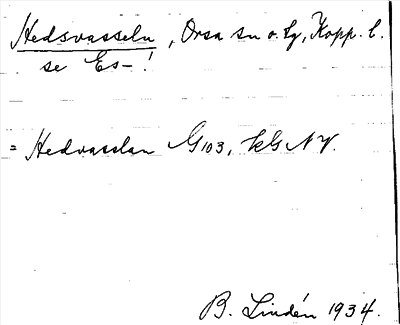 Hedsvasseln, Orsa sn o. tg, Kopp. l.
se Es-!
= Hedvasslan G103, kG NV.
B. Lindén 1934.